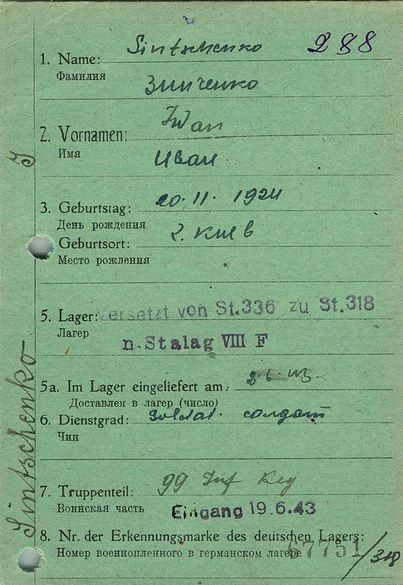 288
1. Name: Sintschenko
Фамилия Зинченко
2. Vornamen: Iwan
Имя Иван
3. Geburtstag: 20.11.1924
День рождения
Geburtsort: г. Киев
Место рождения
5. Lager: Versetzt von St.336 zu St.318
Лагерь
n. Stalag VIII F
5a. Im Lager eingeliefert am:
Доставлен в лагерь (число)
6. Dienstgrad: Soldat. солдат
Чин
7. Truppenteil: 99 Inf Reg
Воинская часть Eingang 19.6.43
8. Nr. der Erkennungsmarke des deutschen Lagers:
Номер военнопленного в германском лагере 67751/318
Sintschenko J